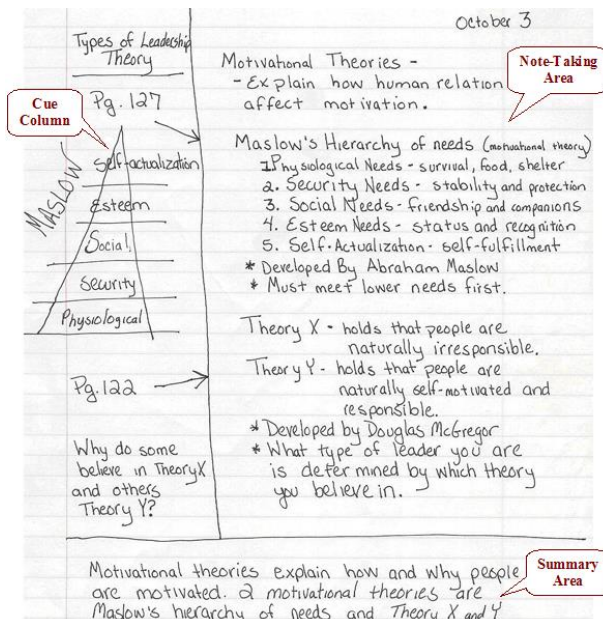 October 3
Types of Leadership
Theory
Pg. 127
Cue
Column
MASLOW
Self-actualization
Esteem
Social
Security
Physiological
Pg. 122
Why do some
believe in Theory X
and others
Theory Y?
Note-Taking
Area
Motivational Theories -
- Explain how human relation
affect motivation.
Maslow's Hierarchy of needs (motivational theory)
1. Physiological Needs - survival, food, shelter
2. Security Needs - stability and protection
3. Social Needs - friendship and companions
4. Esteem Needs - status and recognition
5. Self-Actualization - self-fulfillment
* Developed By Abraham Maslow
* Must meet lower needs first.
Theory X - holds that people are
naturally irresponsible.
Theory Y - holds that people are
naturally self-motivated and
responsible.
* Developed by Douglas McGregor
* What type of leader you are
is determined by which theory
you believe in.
Motivational theories explain how and why people
are motivated. 2 motivational theories are
Maslow's hierarchy of needs and Theory X and Y
Summary
Area